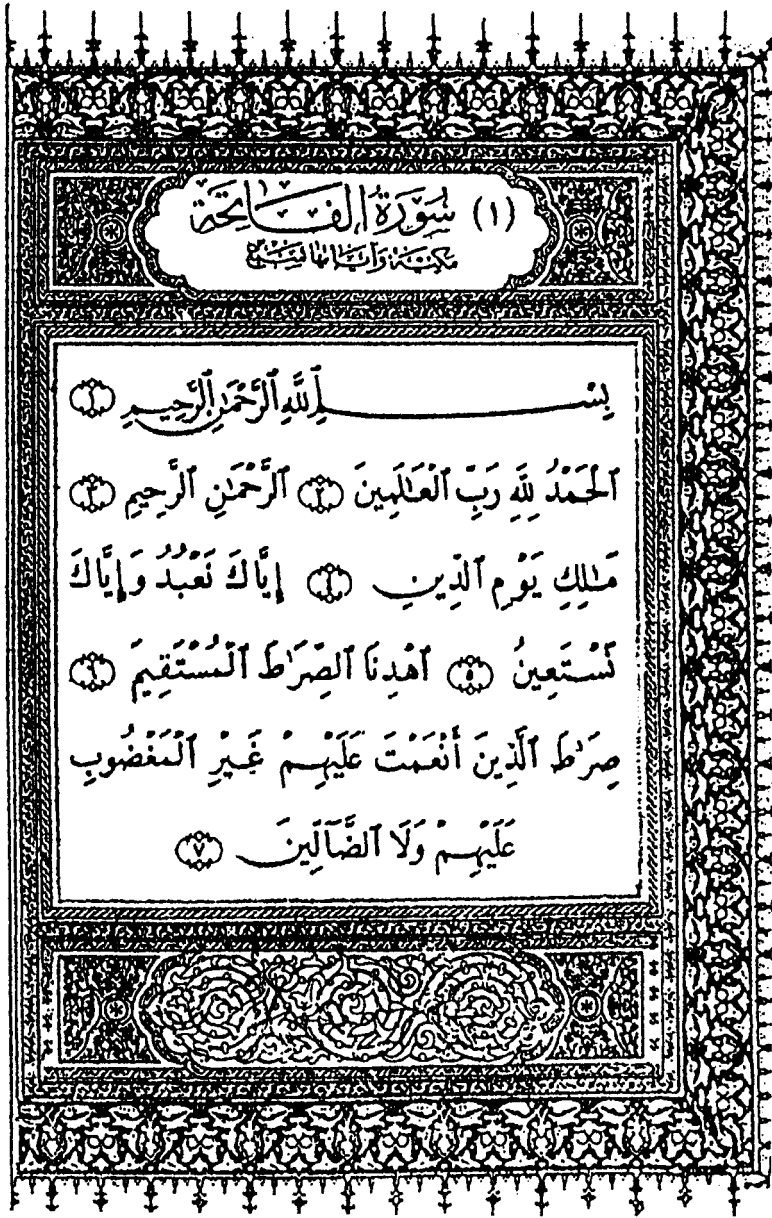 (١) سُورَةُ الفَاتِحَةِ
مَكِيَّة وَآيَاتُهَا سَبْعٌ
بِسْمِ ٱللَّهِ ٱلرَّحْمَٰنِ ٱلرَّحِيمِ ١
ٱلْحَمْدُ لِلَّهِ رَبِّ ٱلْعَٰلَمِينَ ٢ ٱلرَّحْمَٰنِ ٱلرَّحِيمِ ٣
مَٰلِكِ يَوْمِ ٱلدِّينِ ٤ إِيَّاكَ نَعْبُدُ وَإِيَّاكَ
نَسْتَعِينُ ٥ ٱهْدِنَا ٱلصِّرَٰطَ ٱلْمُسْتَقِيمَ ٦
صِرَٰطَ ٱلَّذِينَ أَنْعَمْتَ عَلَيْهِمْ غَيْرِ ٱلْمَغْضُوبِ
عَلَيْهِمْ وَلَا ٱلضَّآلِّينَ ٧